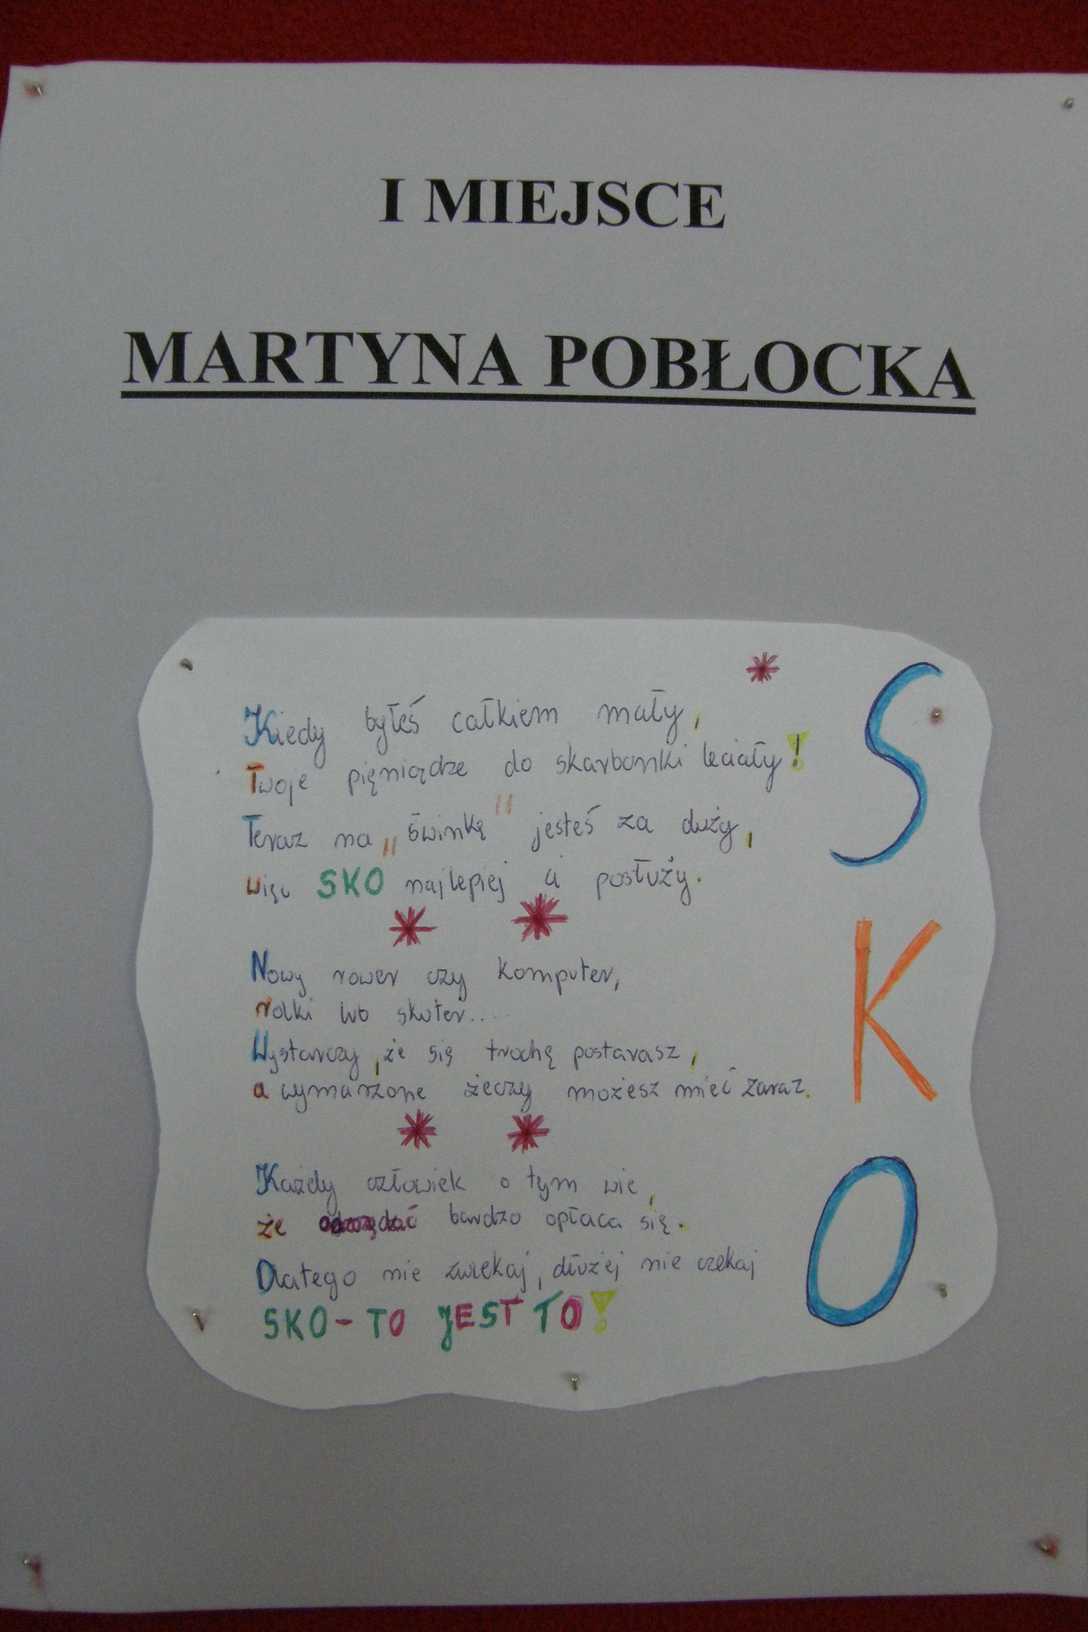 I MIEJSCE
MARTYNA POBŁOCKA
Kiedy byłeś całkiem mały,
Twoje pięniądze do skarbonki leciały!
Teraz na „świnkę" jesteś za duży,
więc SKO najlepiej ci posłuży.
Nowy rower czy komputer,
rolki lub skuter....
Wystarczy, że się trochę postarasz,
a wymarzone żeczy możesz mieć zaraz.
Każdy człowiek o tym wie,
że bardzo opłaca się.
Dlatego nie zwlekaj, dłużej nie czekaj
SKO - TO JEST TO!
S
K
O